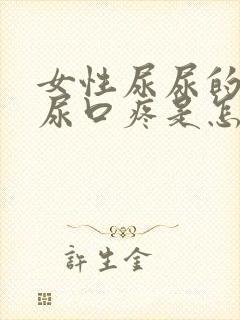 女性尿尿的
尿口疼是怎
許生金